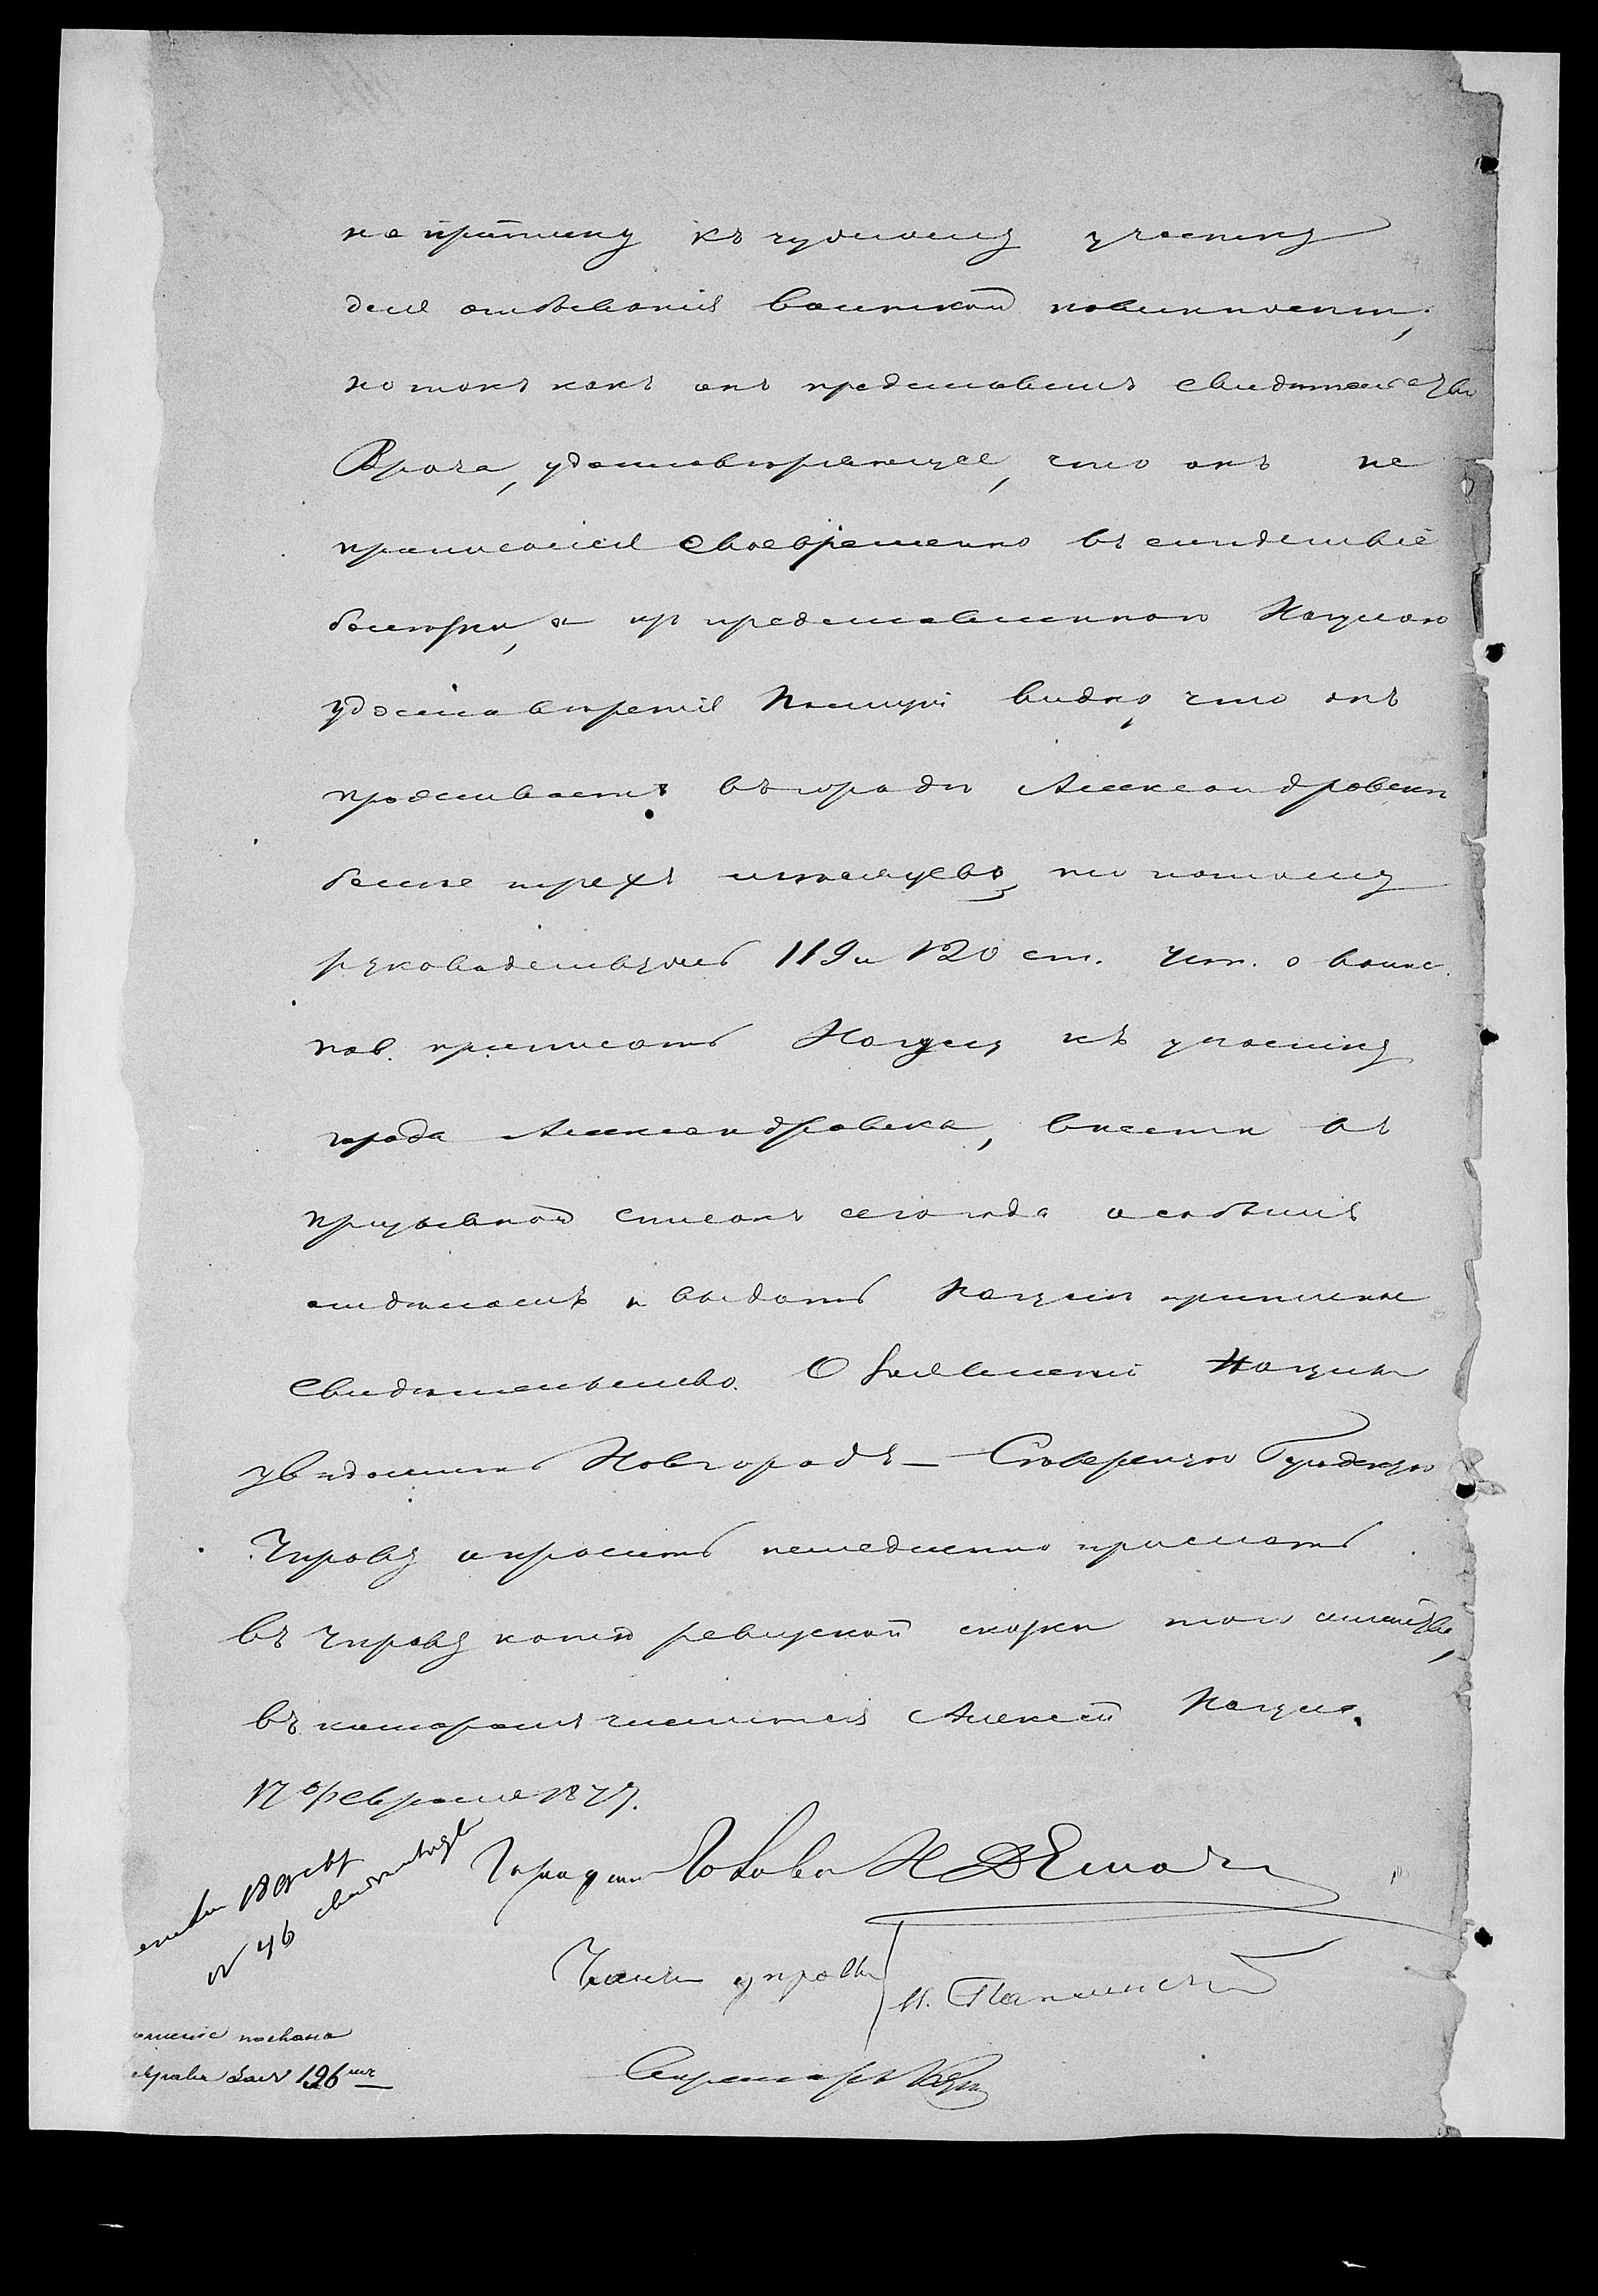 на приписку къ чужому участку
для отбыванія воинской повинности,
но такъ какъ онъ представилъ свидѣтельство
Врача, удостовѣряющее, что онъ не
приписался своевременно въ слѣдствіе
болѣзни, а из представленнаго
удостовѣренія Полиціи видно, что онъ
проживаетъ въ городѣ Александровскѣ
болѣе трехъ мѣсяцевъ, то потому
руководствуясь 119 и 120 ст. Уст. о воинс.
пов. приписать къ участку
города Александровска, внести въ
призывной списокъ сего года особымъ
отдѣломъ и выдать приписное
свидѣтельство. О
увѣдомить Новгородъ-Сѣверскую Городскую
Управу и просить немедленно прислать
въ Управу копію ревизской сказки того семейства,
въ которомъ числится Алексей
17 Февраля 1877.
Городской Голова
Членъ управы
№ 46 свидѣтельство
послана
за № 196
Секретарь